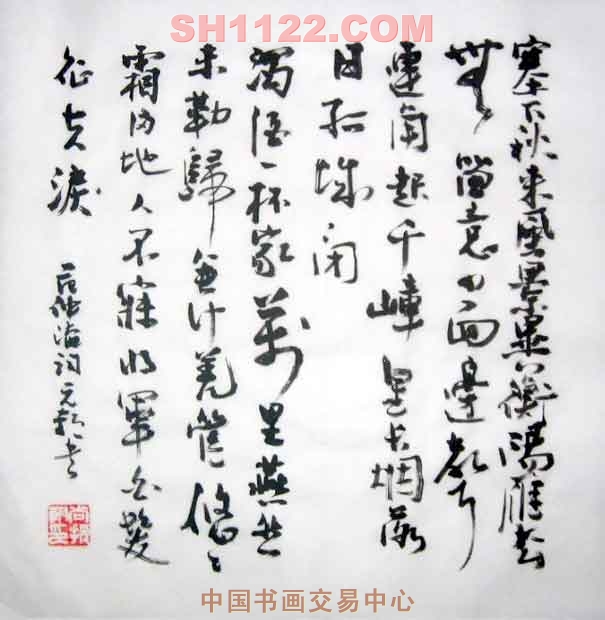 SH1122.COM
塞下秋来風景異衡陽雁去
無留意四面邊聲
連角起千嶂里长烟落
日孤城闭
濁酒一杯家萬里燕然
未勒歸無计羌管悠々
霜满地人不寐将軍白髮
征夫淚
范仲淹词元书
中国书画交易中心